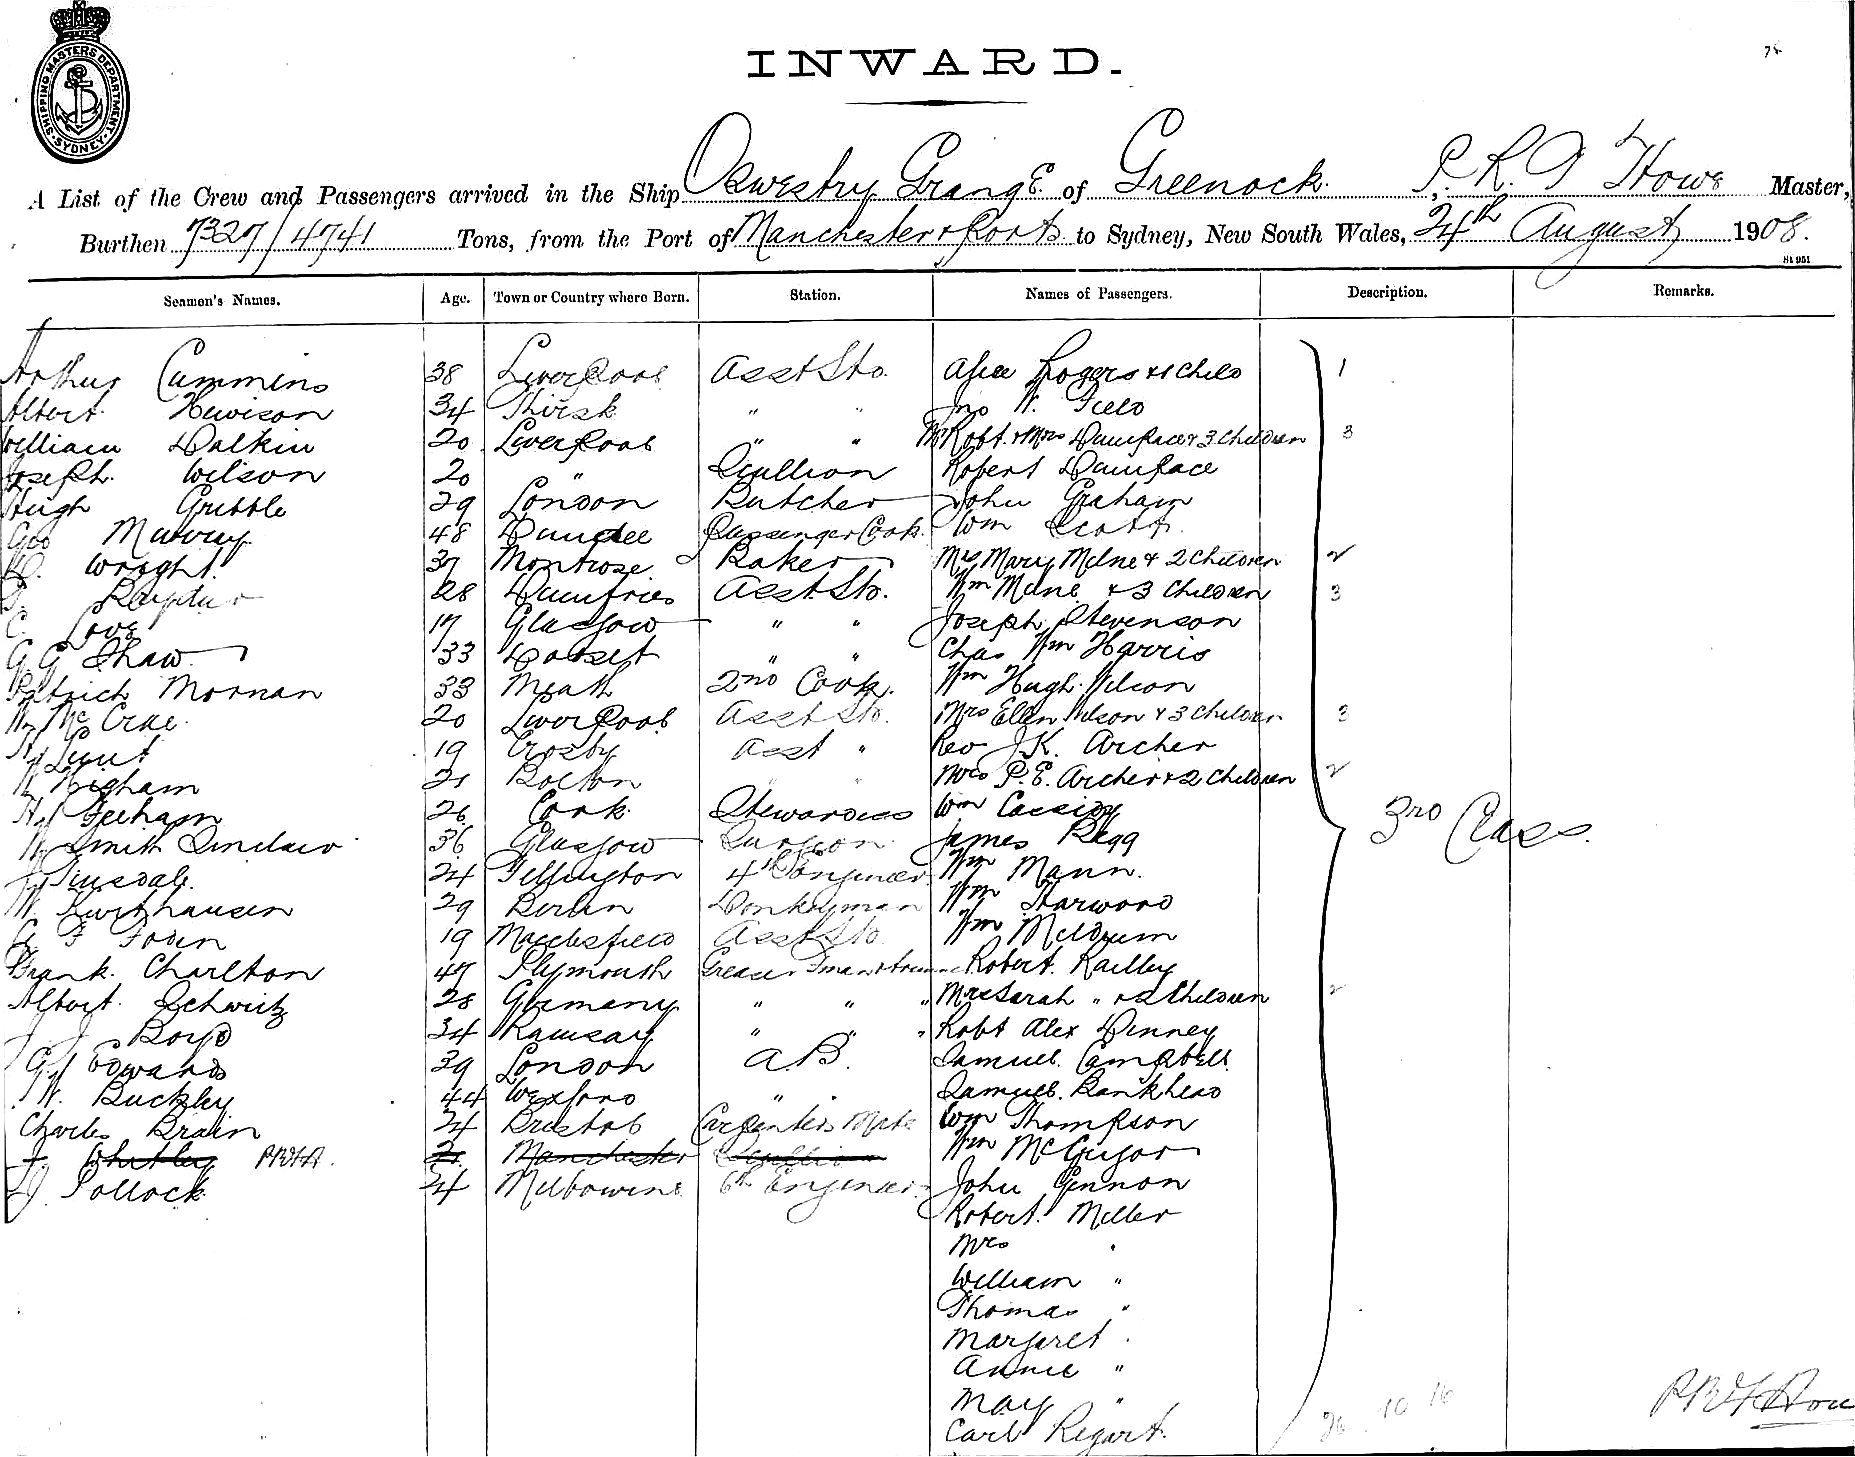 SHIPPING MASTERS DEPARTMENT SYDNEY
INWARD.
A List of the Crew and Passengers arrived in the Ship Oswestry Grange of Greenock. Howe Master,
Burthen 7327/4741 Tons, from the Port of Manchester & Ports to Sydney, New South Wales, 24th August 1908.
St 951
Seamen's Names. Age. Town or Country where Born. Station. Names of Passengers. Description. Remarks.
Arthur Cummins 38 Liverpool Asst Sto. Alice Rogers & 1 Child 1
Albert Hewison 34 Thirsk " " Jno W. Field
William Dalkin 20 Liverpool " " Mr Robt. & Mrs Duniface & 3 Children 3
Joseph. Wilson 20 " Scullion Robert Duniface
Hugh Gribble 29 London Butcher John Graham
Geo Murray 48 Dundee Passenger Cook. Wm Scott.
Wright. 37 Montrose. Baker Mrs Mary Milne & 2 Children 2
28 Dumfries Asst. Sto. Wm Milne & 3 Children 3
C. Love 17 Glasgow " " Joseph Stevenson
G G Shaw 33 Dorset " " Chas Wm Harris
Patrick Moonan 33 Meath 2nd Cook. Wm Hugh Nelson
W. McCrae. 20 Liverpool Asst Sto. Mrs Ellen Nelson & 3 Children 3
H. Lunt 19 Crosby Asst " Rev J.K. Archer
Higham 21 Bolton " " Mrs P.E. Archer & 2 Children 2
Feeham 26 Cork Stewardess Wm Cassidy
W. Smith Sinclair 36 Glasgow Surgeon James Regg
J. Tinsdale. 24 4th Engineer Wm Mann.
W. 29 Berlin Donkeyman Wm Harwood
F Foden 19 Macclesfield Asst Sto. Wm Meldrum
Frank. Charlton 47 Plymouth Greaser Robert. Railley
Albert. Schwitz 28 Germany " " " Mrs Sarah " & 2 Children 2
J J Boyd 34 Ramsay " " " Robt Alex Dinney
G. Edwards 39 London AB. Samuel Campbell
W. Buckley 44 Wexford " " Samuel. Bankhead
Charles Brain 24 Bristol Carpenters Mate Wm Thompson
J. Whitley 21 Manchester Scullion Wm McGrigor
J. Pollock 24 Melbourne 6th Engineer John Gennon
Robert. Miller
Mrs "
William "
Thomas "
Margaret "
Annie "
May "
Carl Regart.
3rd Class.
26 10 16